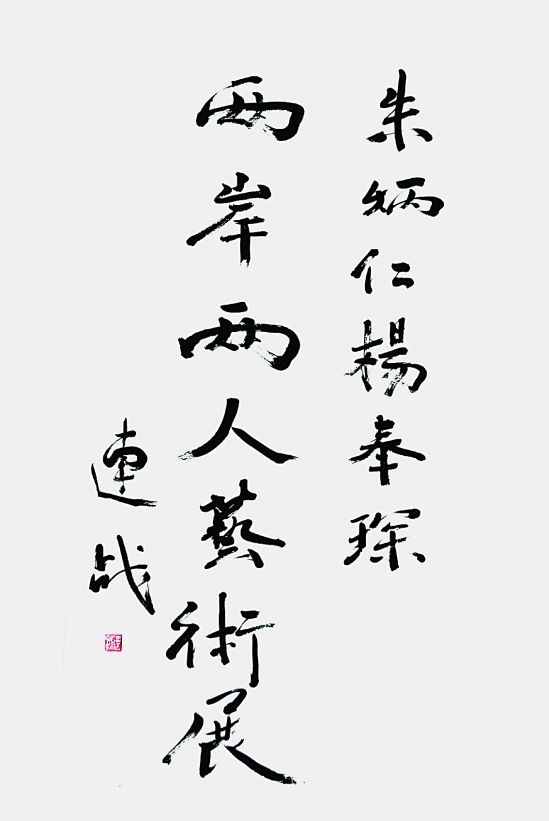 朱炳仁楊奉琛
两岸两人藝術展
連战